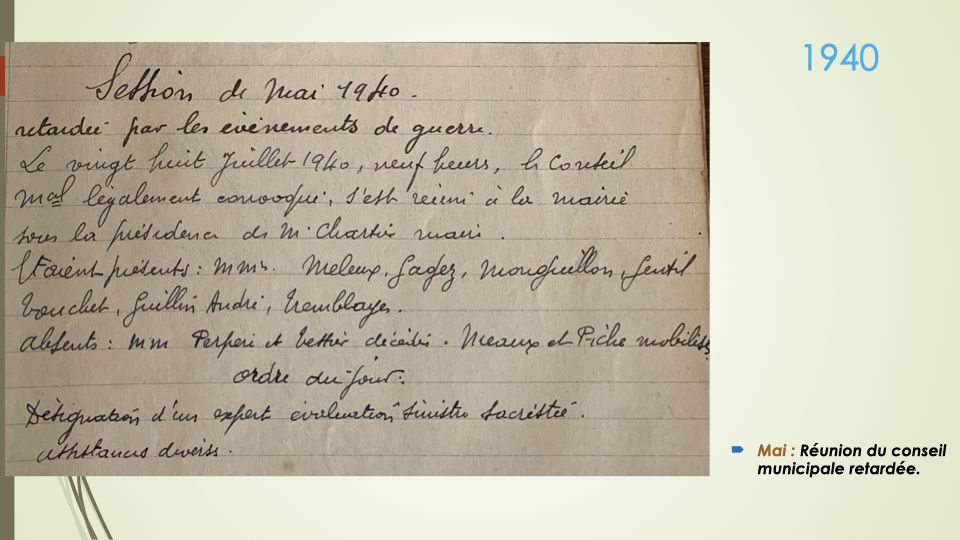 1940
Session de Mai 1940.
retardée par les évènements de guerre.
Le vingt huit Juillet 1940, neuf heures, le Conseil
mal légalement convoqué, s'est réuni à la mairie
sous la présidence de M. Chartier maire.
Etaient présents : MMrs. Meleux, Gagez, Monguillon, Gentil
Bouchet, Guillin André, Tremblayes.
Absents : MM et décédés. Meaux et Piche mobilisés
ordre du jour :
Désignation d'un expert évaluation sinistre sacristie.
assistances diverses.
Mai : Réunion du conseil
municipale retardée.